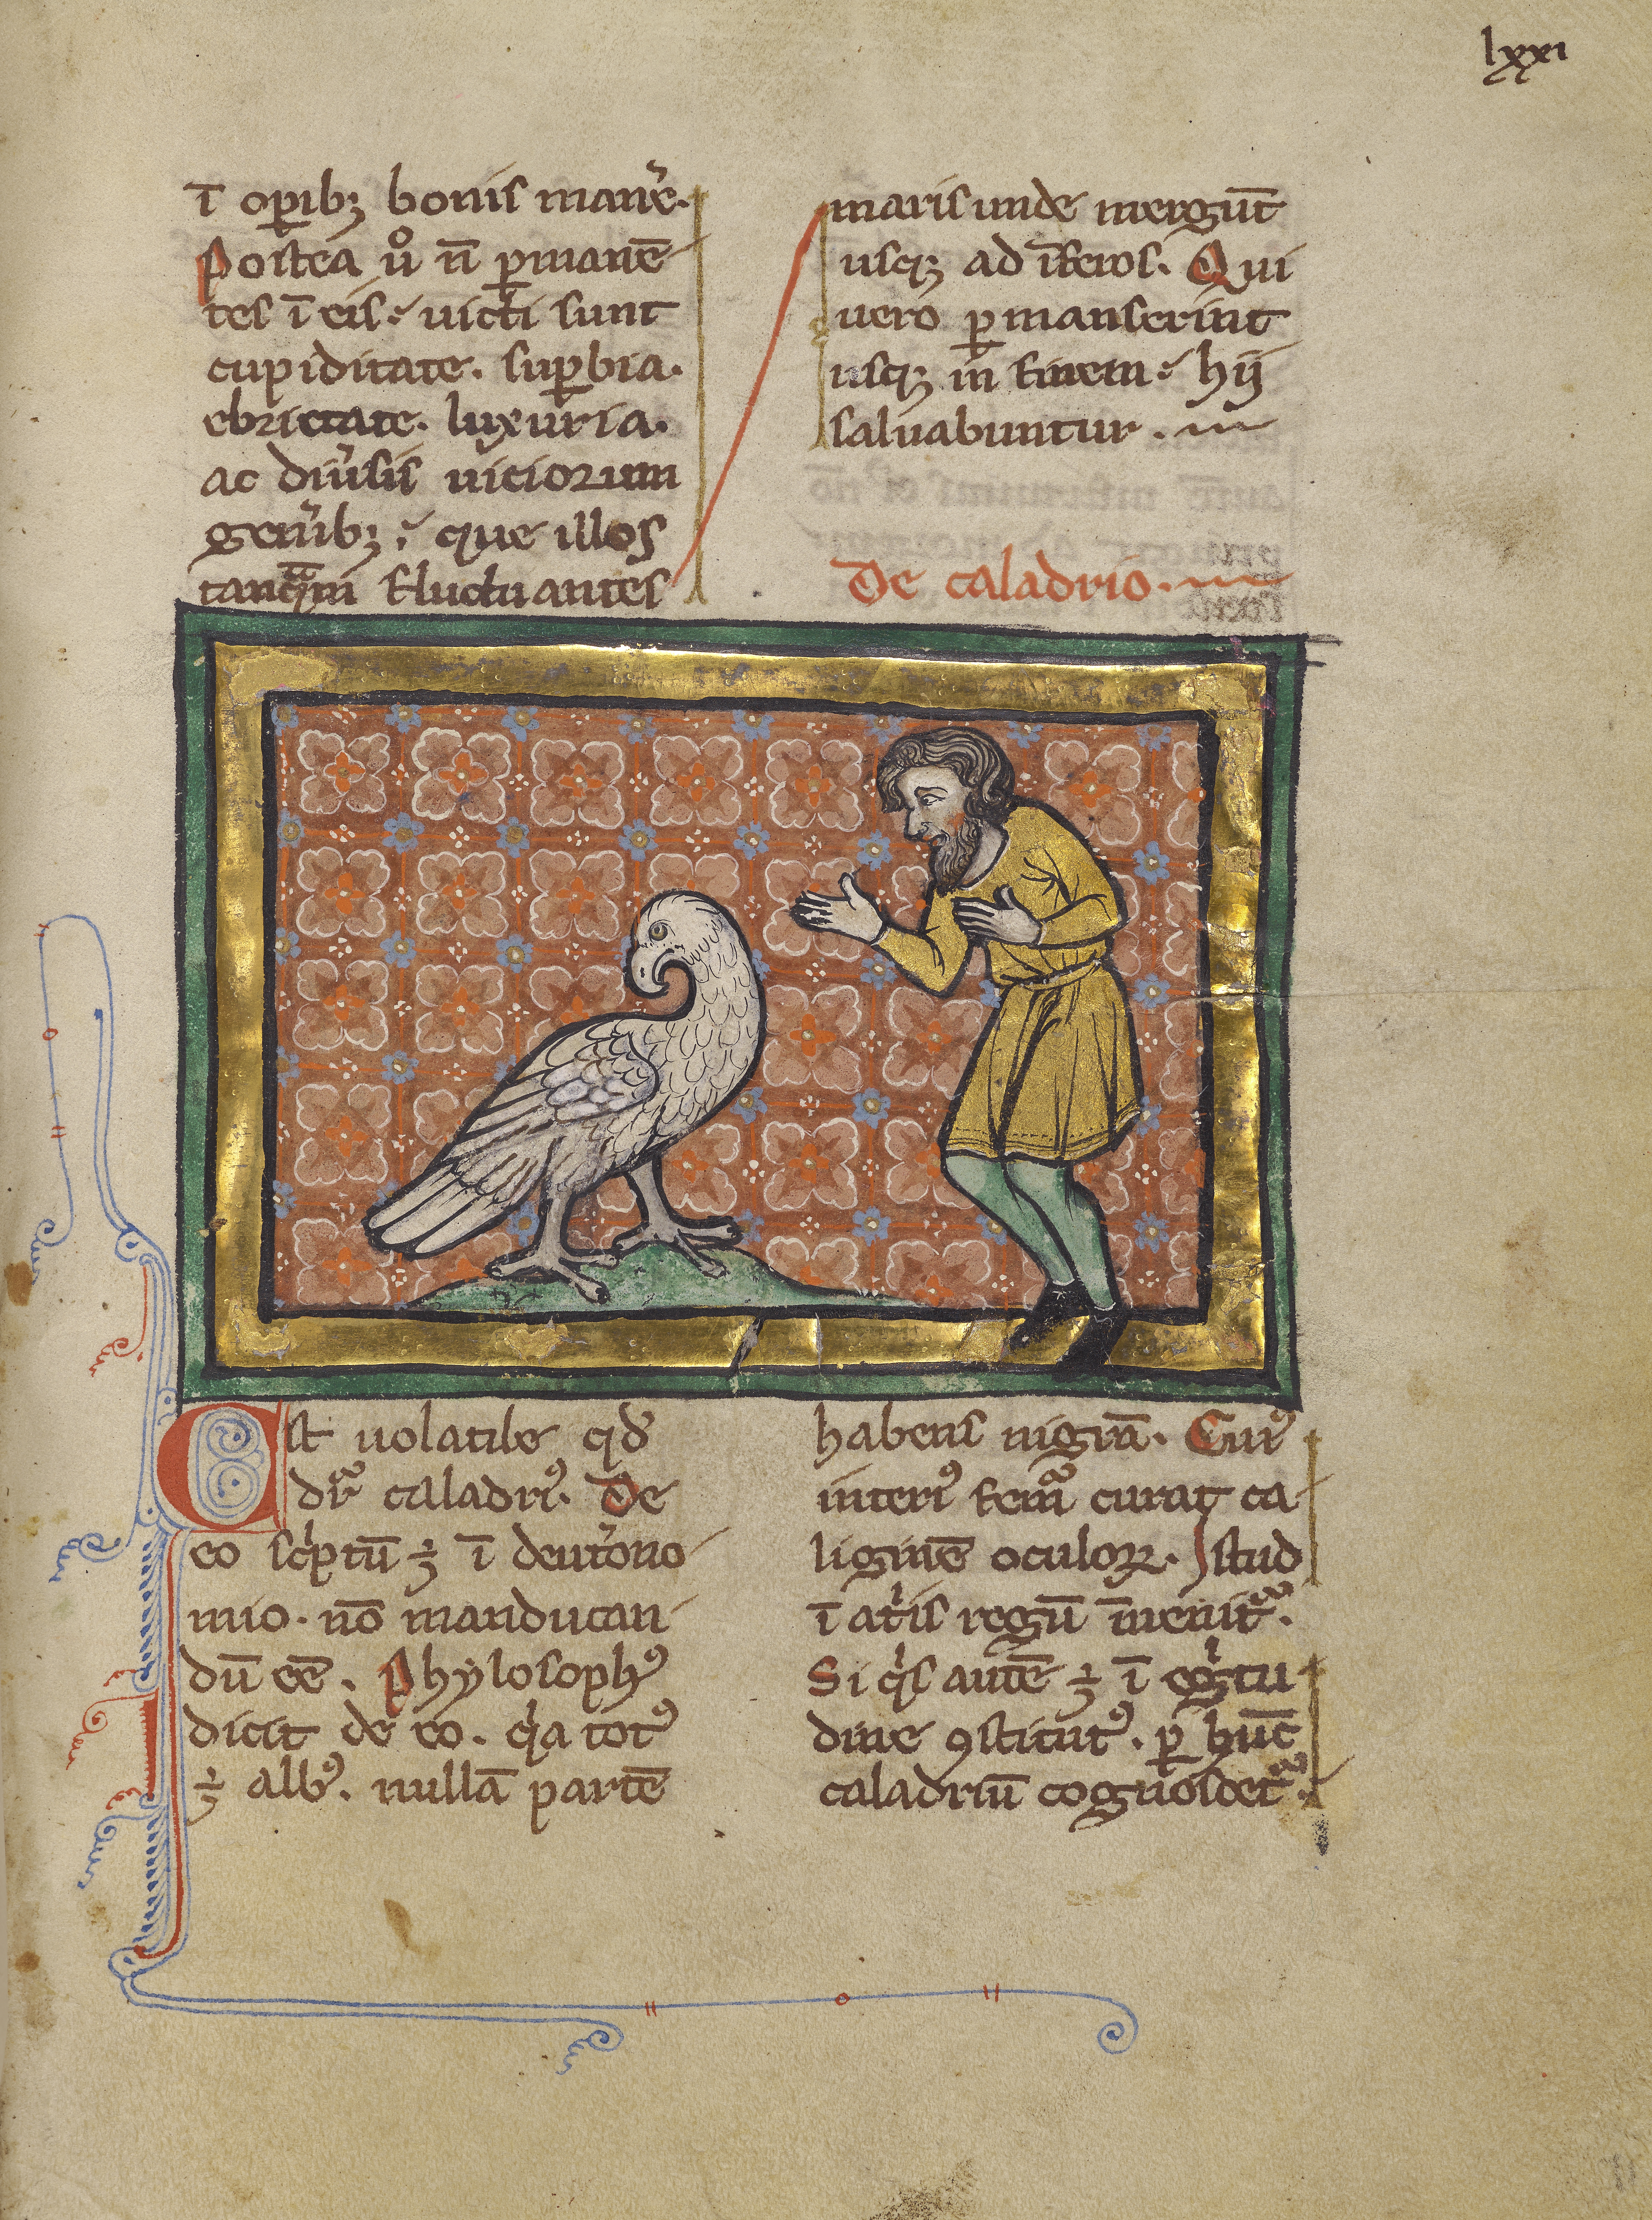 lxxi
ī oꝑibꝫ bonis man͛e.
Postea uͦ n̄ ꝑmanē
tes ī eis. uicti sunt
cupiditate. suꝑbia.
ebrietate. luxuria.
ac diu͛sis uiciorum
gen͛ibꝫ. que illos
tanqᷓm fluctuantes
maris unde mergūt
usqꝫ ad īferos. Qui
uero ꝑmanserint
usqꝫ in finem. hij
saluabuntur.
De caladrio.
Est uolatile qd͛
dr̄ᷓ caladriꝰ. De
eo sc͛ptū ÷ ī deut͛ono
mio. nō manducan
dū eē. Phylosophꝰ
dicit de eo. qⁱa totꝰ
÷ albꝰ. nullā partē
habens nigrā. Cuiꝰ
interiꝰ femᷓ curat ca
liginē oculoꝝ. Istud
ī at͛is regū īuenitᷓ.
Si qⁱs autē ÷ ī egⁱtu
dine ꝯstitutꝰ. ꝑ hūc
caladriū cognoscetᷓ.